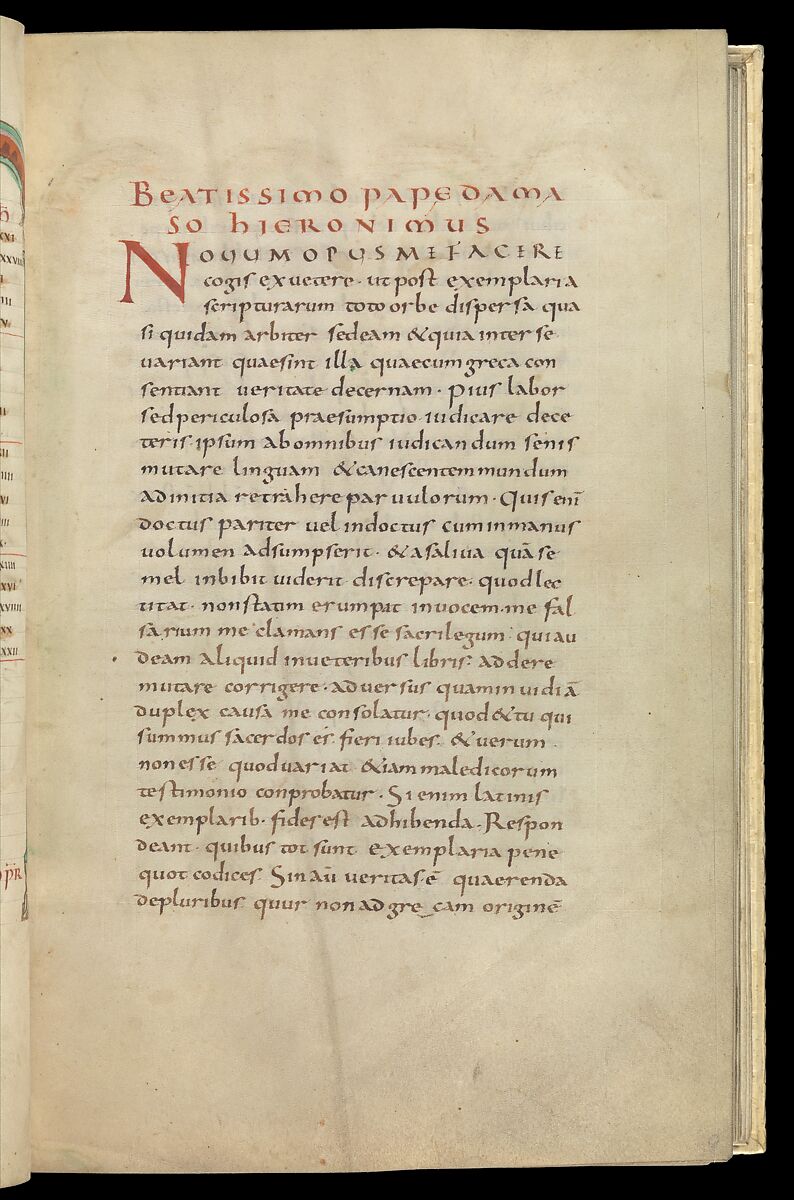 BEATISSIMO PAPE DAMA
SO HIERONIMUS
NOUUM OPUS ME FACERE
cogis ex uetere · ut post exemplaria
scripturarum toto orbe dispersa qua
si quidam arbiter sedeam & quia inter se
uariant quae sint illa quae cum greca con
sentiant ueritate decernam · Pius labor
sed periculosa praesumptio · iudicare de ce
teris · ipsum ab omnibus iudicandum senis
mutare linguam & canescentem mundum
ad initia retrahere paruulorum · Quis eni̅
doctus pariter uel indoctus cum in manus
uolumen adsumpserit · & a saliua qua̅ se
mel inbibit uiderit discrepare · quod lec
titat · non statim erumpat in uocem · me fal
sarium me clamans esse sacrilegum · qui au
deam aliquid in ueteribus libris · addere
mutare corrigere · aduersus quam inuidia̅
duplex causa me consolatur · quod & tu qui
summus sacerdos es · fieri iubes · & uerum
non esse quod uariat · &iam maledicorum
testimonio conprobatur · Si enim latinis
exemplarib · fides est adhibenda · Respon
deant · quibus tot sunt exemplaria pene
quot codices · Sin au̅ ueritas e̅ quaerenda
de pluribus quur non ad grecam origine̅
XVI
XX
XXII
PR